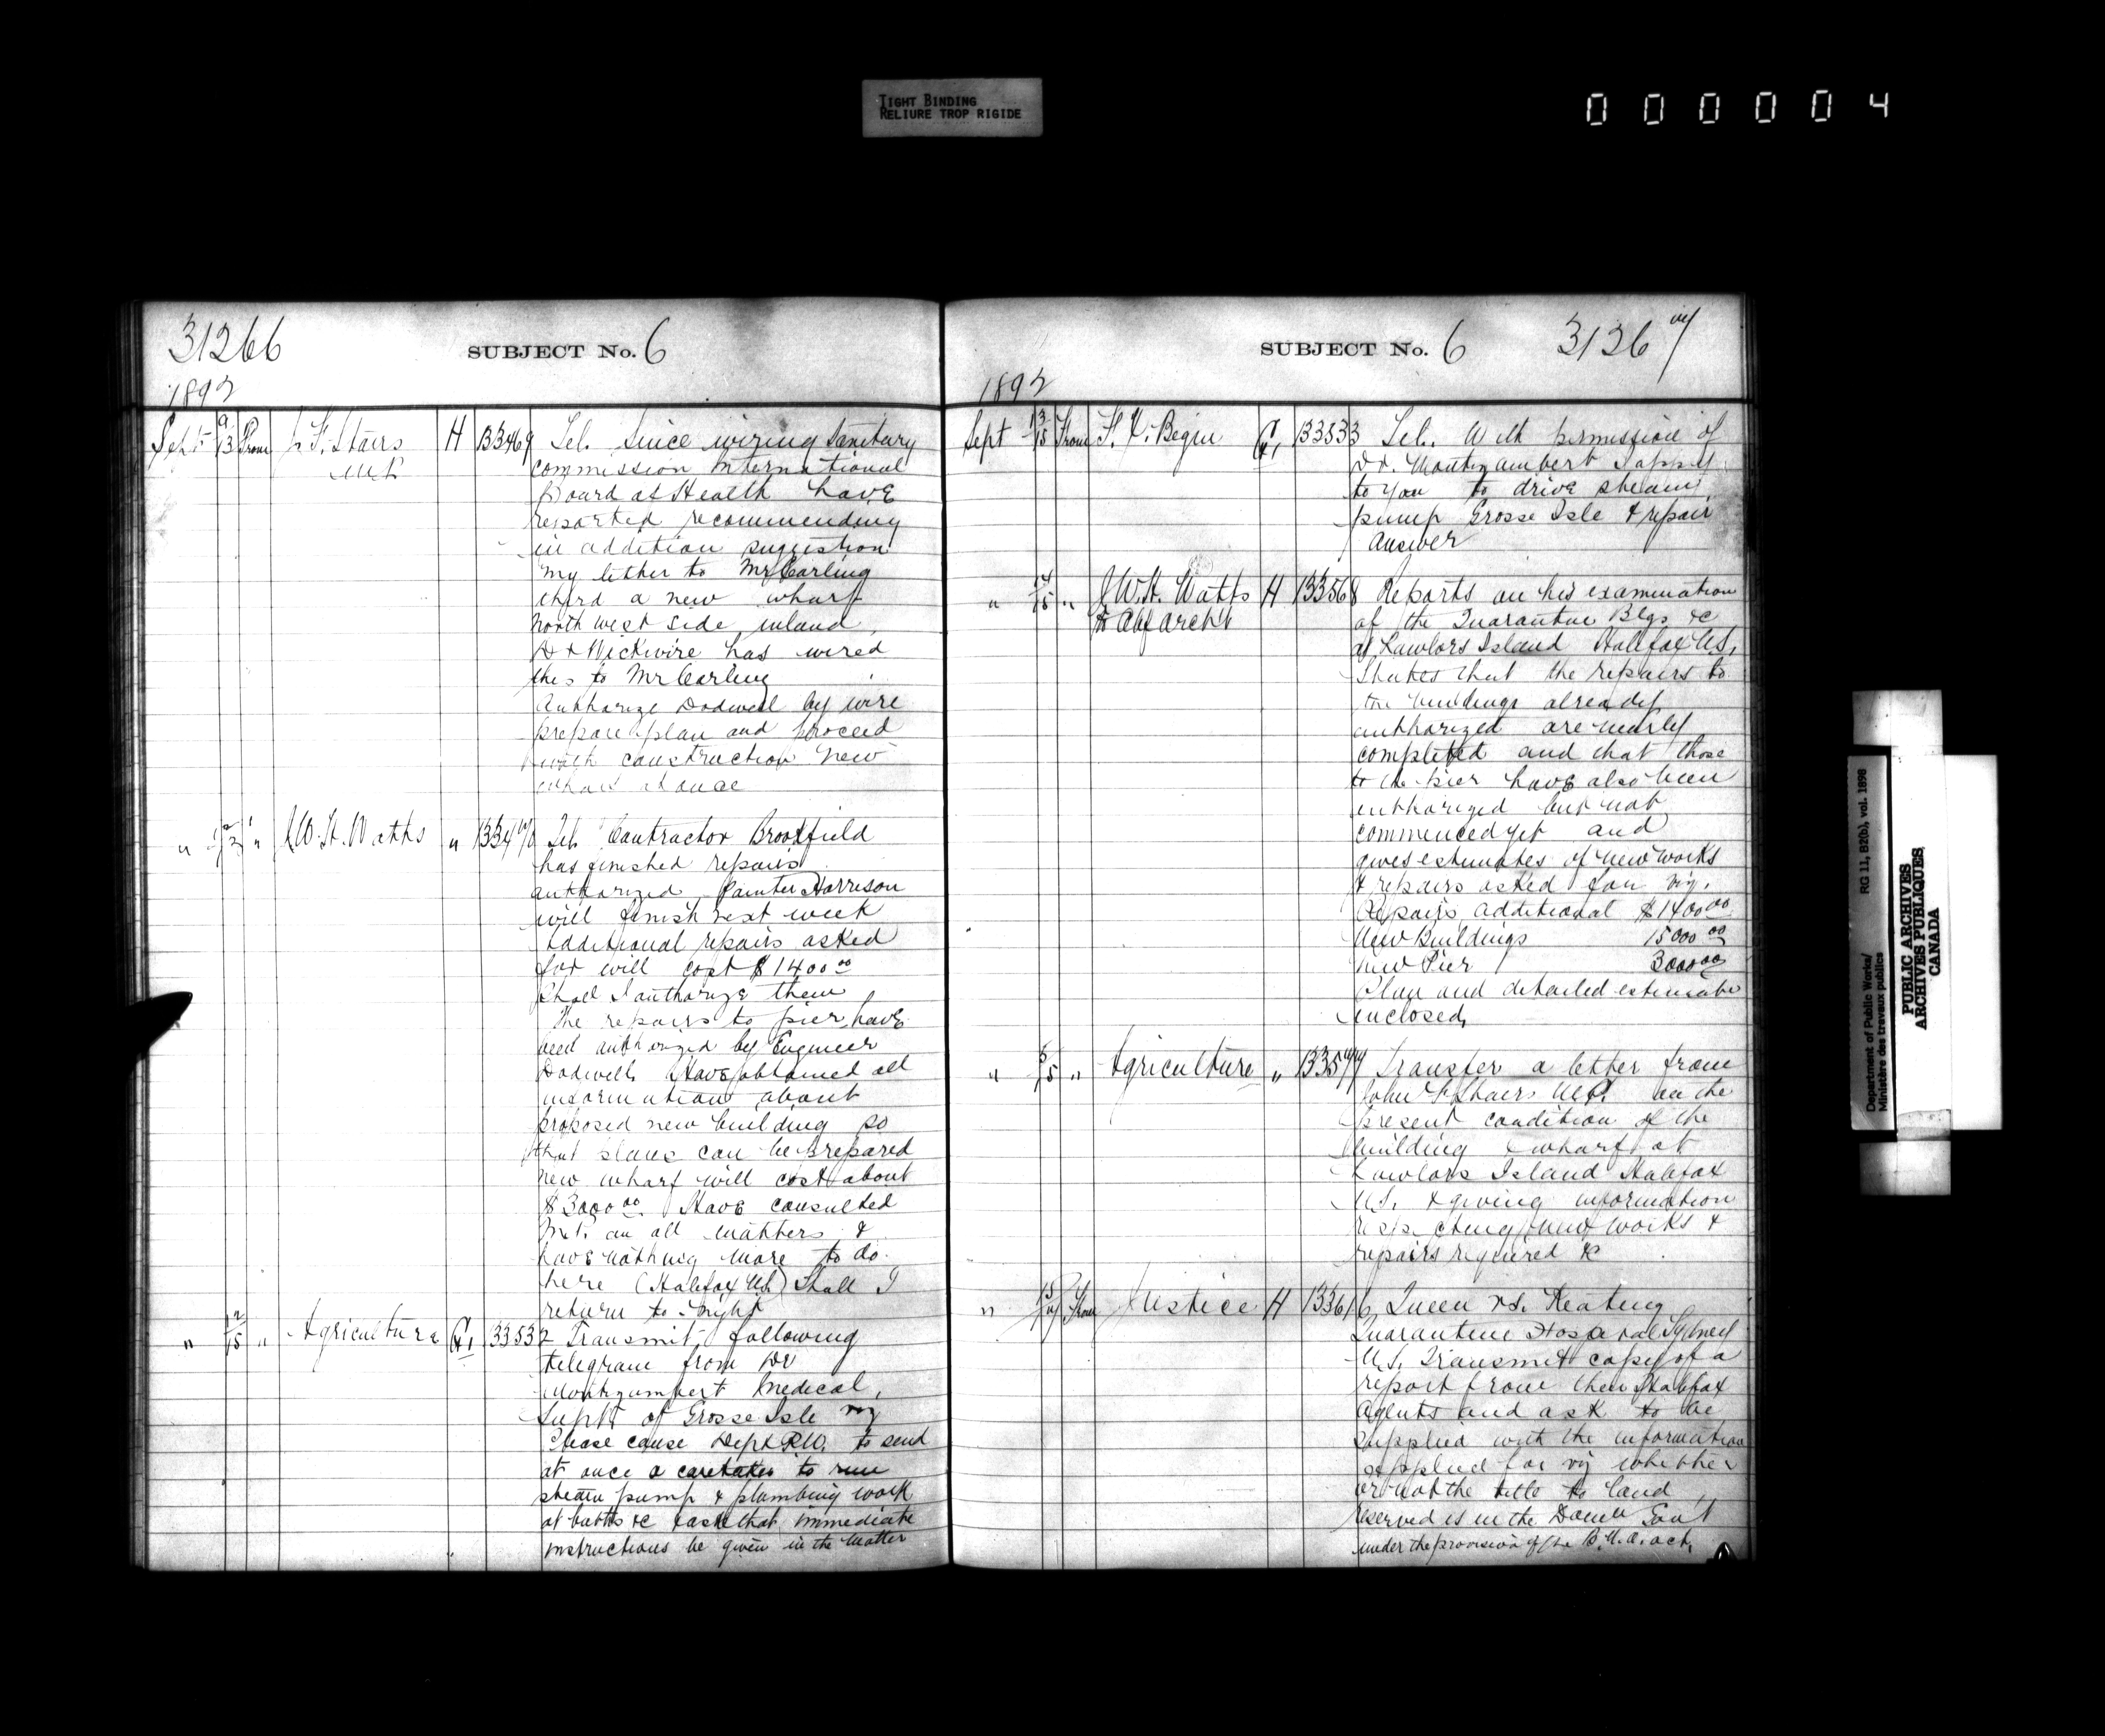 TIGHT BINDING
RELIURE TROP RIGIDE
000004
31266
SUBJECT No. 6
1892
Sept 9/13 From J. F. Stairs H 133469 Tel. Since wiring Sanitary
M.P.
commission International
Board of Health have
reported recommending
in addition suggestion
my letter to Mr Carling
third a new wharf
North west side inland,
Dr Wickwire has wired
this to Mr Carling
Authorize Dodwell by wire
prepare plan and proceed
with construction new
wharf at once
" " J.W.H. Watts " 133470 Tel. Contractor Brookfield
has finished repairs
authorized Painter Harrison
will finish next week
additional repairs asked
for will cost $1400 00
Shall I authorize them
The repairs to pier have
been authorized by Engineer
Dodwell. Have obtained all
information about
proposed new building so
that plans can be prepared
New wharf will cost about
$3000 00. Have consulted
M.P. on all matters &
have nothing more to do
here (Halifax N.S.) Shall I
return to-night
" 12/15 " Agriculture 133532 Transmit following
telegram from Dr
Montizambert Medical,
Supt of Grosse Isle viz
Please cause Dept P.W. to send
at once a caretaker to run
steam pump & plumbing work
at baths &c & ask that immediate
instructions be given in the matter
SUBJECT No. 6
31267
1892
Sept 13/15 From F. X. Begin 133533 Tel. With permission of
Dr. Montizambert I apply
to you to drive steam
pump Grosse Isle & repair
Answer
" 14/15 " J.W.H. Watts H 133568 Reports on his examination
to Chf Archt
of the Quarantine Blgs &c
at Lawlors Island Halifax N.S.
States that the repairs to
the buildings already
authorized are nearly
completed and that those
to the pier have also been
authorized but not
commenced yet and
gives estimates of new works
& repairs asked for viz.
Repairs, additional $1400 00
New Buildings 15000 00
New Pier 3000 00
Plan and detailed estimate
enclosed,
" " Agriculture " 133577 Transfer a letter from
John F. Stairs M.P. on the
present condition of the
building & wharf at
Lawlors Island Halifax
N.S. & giving information
respecting new works &
repairs required &c
" From Justice H 133616 Queen vs. Keating
Quarantine Hospital Sydney
N.S. Transmit copy of a
report from their Halifax
Agents and ask to be
supplied with the information
applied for viz whether
or not the title to land
reserved is in the Domn Govt
under the provision of the B.N.A. act,
Department of Public Works/ RG 11, B2(b), vol. 1898
Ministère des travaux publics
PUBLIC ARCHIVES
ARCHIVES PUBLIQUES
CANADA